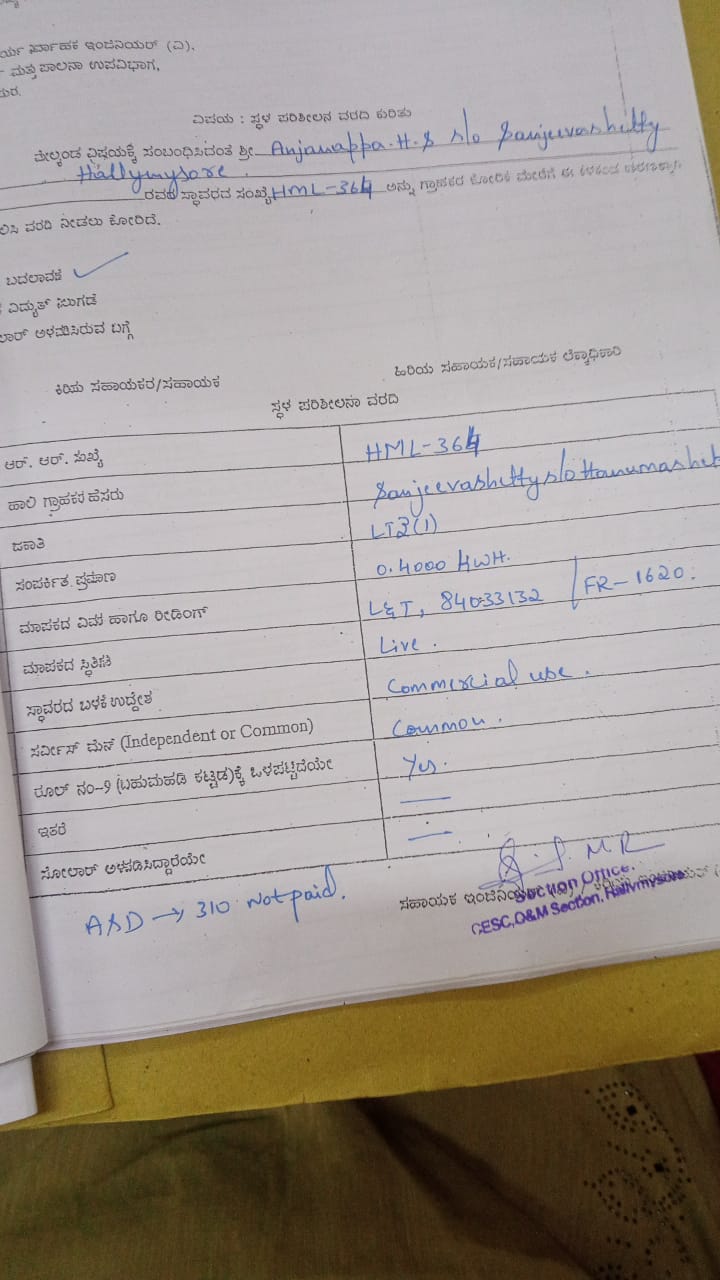 ನಿರ್ವಾಹಕ ಇಂಜಿನಿಯರ್ (ವಿ),
ಮತ್ತು ಪಾಲನಾ ಉಪವಿಭಾಗ,
ವಿಷಯ : ಸ್ಥಳ ಪರಿಶೀಲನ ವರದಿ ಕುರಿತು
ಮೇಲ್ಕಂಡ ವಿಷಯಕ್ಕೆ ಸಂಬಂಧಿಸಿದಂತೆ ಶ್ರೀ Anjanappa.H.S s/o Sanjeevashetty
Hallymysore.
ರವರ ಸ್ಥಾವರದ ಸಂಖ್ಯೆ HML-364 ಅನ್ನು ಗ್ರಾಹಕರ ಕೋರಿಕೆ ಮೇರೆಗೆ ಈ ಕೆಳಕಂಡ
ವರದಿ ನೀಡಲು ಕೋರಿದೆ.
ಬದಲಾವಣೆ ✓
ವಿದ್ಯುತ್ ಬಿಲುಗಡೆ
ಅಳವಡಿಸಿರುವ ಬಗ್ಗೆ
ಕಿರಿಯ ಸಹಾಯಕರ/ಸಹಾಯಕ
ಹಿರಿಯ ಸಹಾಯಕ/ಸಹಾಯಕ ಲೆಕ್ಕಾಧಿಕಾರಿ
ಸ್ಥಳ ಪರಿಶೀಲನಾ ವರದಿ
ಆರ್. ಆರ್. ಸಂಖ್ಯೆ HML-364
ಹಾಲಿ ಗ್ರಾಹಕರ ಹೆಸರು Sanjeevashetty s/o Hanumashet
ಜಕಾತಿ LT3(1)
ಸಂಪರ್ಕಿತ ಪ್ರಮಾಣ 0.4000 KWH.
ಮಾಪಕದ ವಿವರ ಹಾಗೂ ರೀಡಿಂಗ್ L&T, 84033132 / FR-1620.
ಮಾಪಕದ ಸ್ಥಿತಿಗತಿ Live.
ಸ್ಥಾವರದ ಬಳಕೆ ಉದ್ದೇಶ Commercial use.
ಸರ್ವೀಸ್ ಮೆನ್ (Independent or Common) Common.
ರೂಲ್ ನಂ-9 (ಬಹುಮಹಡಿ ಕಟ್ಟಡ)ಕ್ಕೆ ಒಳಪಟ್ಟಿದೆಯೇ Yes.
ಇತರೆ —
ಸೋಲಾರ್ ಅಳವಡಿಸಿದ್ದಾರೆಯೇ —
ASD → 310 Not paid.
ಸಹಾಯಕ ಇಂಜಿನಿಯರ್
Section Office.
CESC,O&M Section, Hallymysore